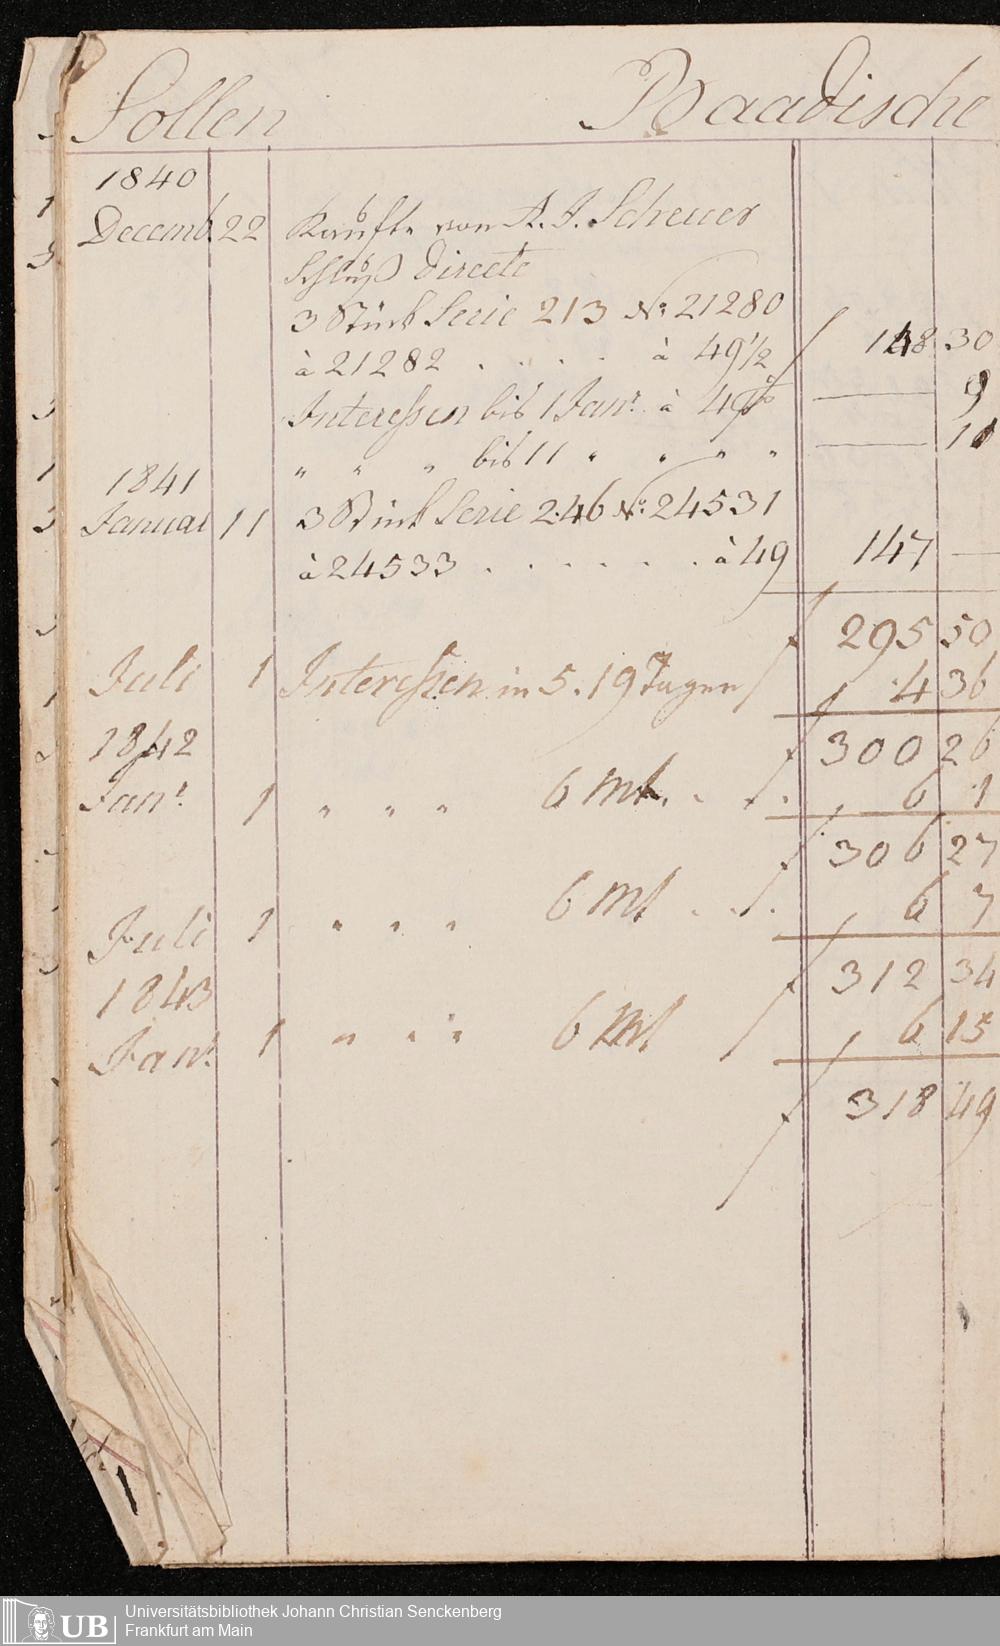 Sollen Baadische
1840
Decemb. 22 Kaufte von A. J. Scheuer
Schluß Directe
3 Stück Serie 213 N: 21280
à 21282 . . . . à 49 1/2 f 148 30
Interessen bis 1 Janr. à 4% — 9
" " " bis 11 " " " " — 11
1841
Januar 11 3 Stück Serie 246 N: 24531
à 24533 . . . . . . à 49 147 —
f 295 50
Juli 1 Interessen in 5. 19 Tagen f 4 36
f 300 26
1842
Janr. 1 " " " 6 mt. . . . 6 1
f 306 27
Juli 1 " " " 6 mt . . . 6 7
f 312 34
1843
Janr. 1 " " " 6 mt 6 15
f 318 49
UB
Universitätsbibliothek Johann Christian Senckenberg
Frankfurt am Main